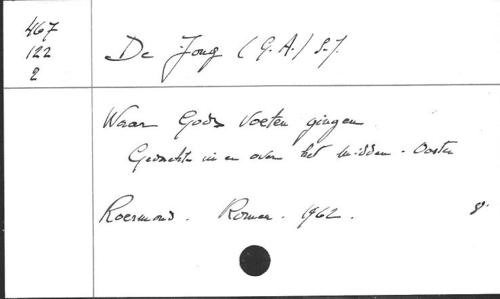 467
122
2
De Jong (G.A.) S.J.
Waar Gods Voeten gingen
Gedachten in en over het Midden-Oosten
Roermond. Romen. 1962. 8°